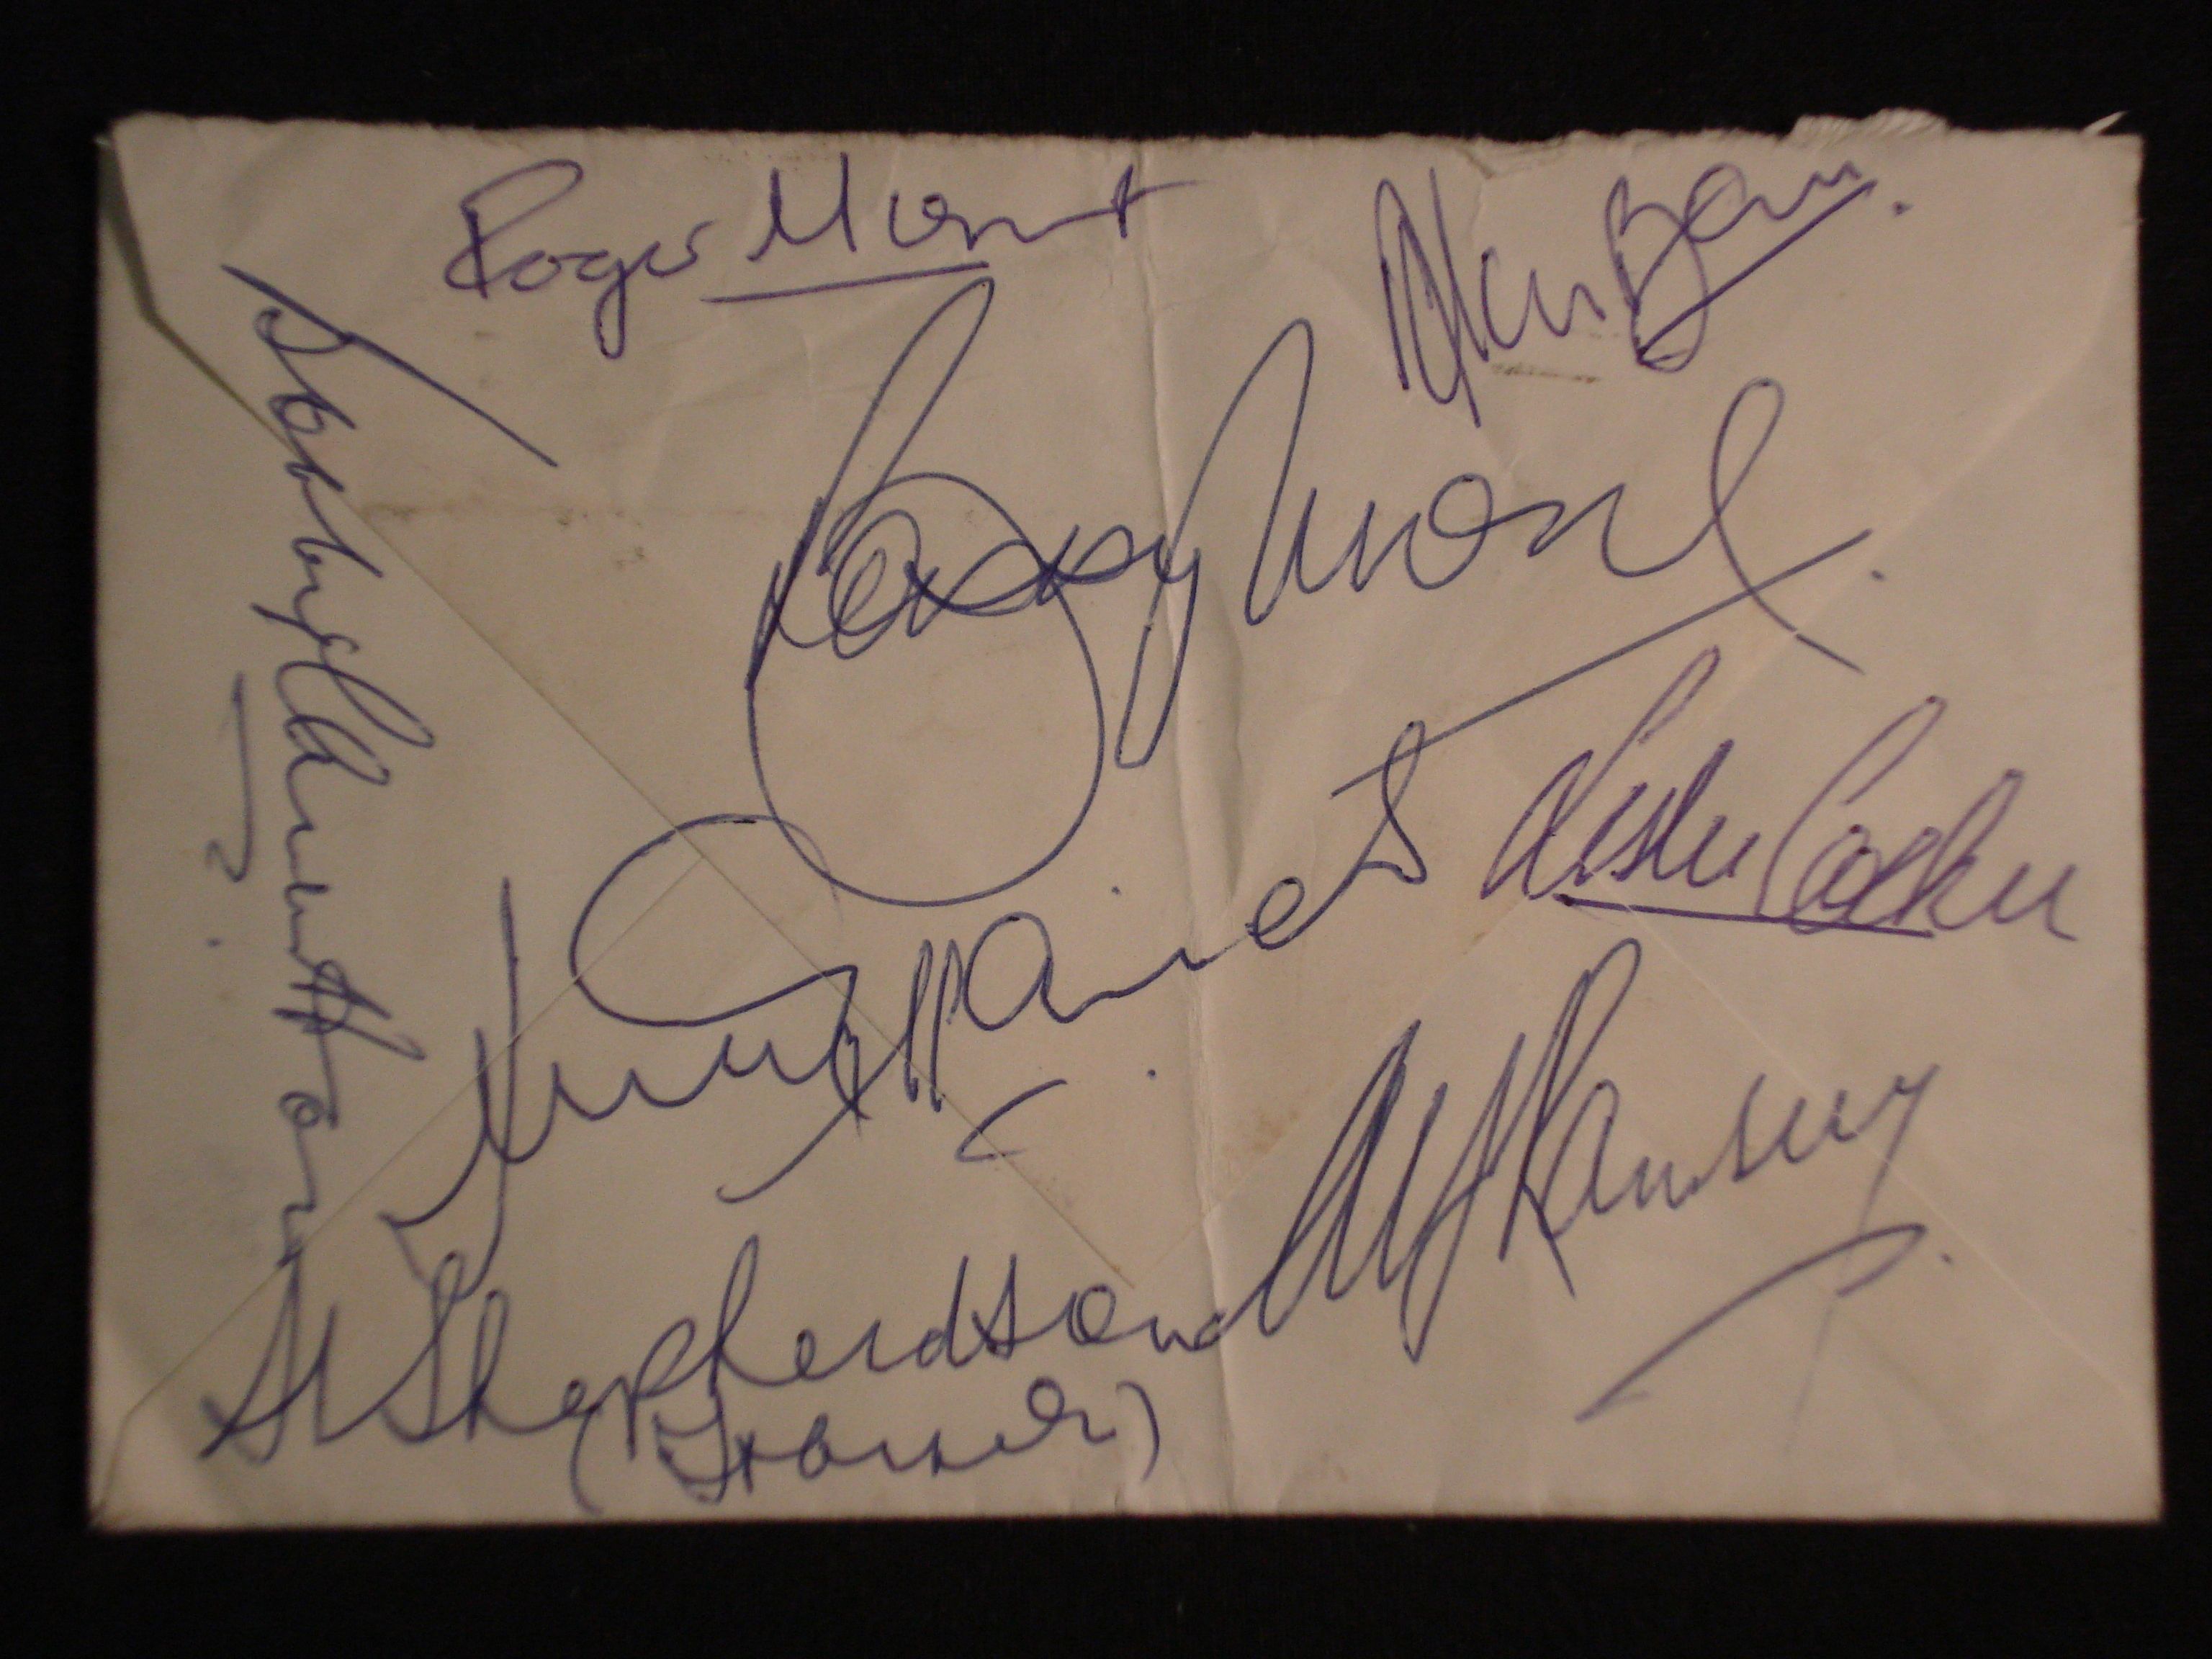 Roger Hunt
Alan Ball.
Bobby Moore.
Bobby Charlton.
Jimmy Armfield.
Leslie Cocker
Alf Ramsey.
H Shepherdson
(Trainer)